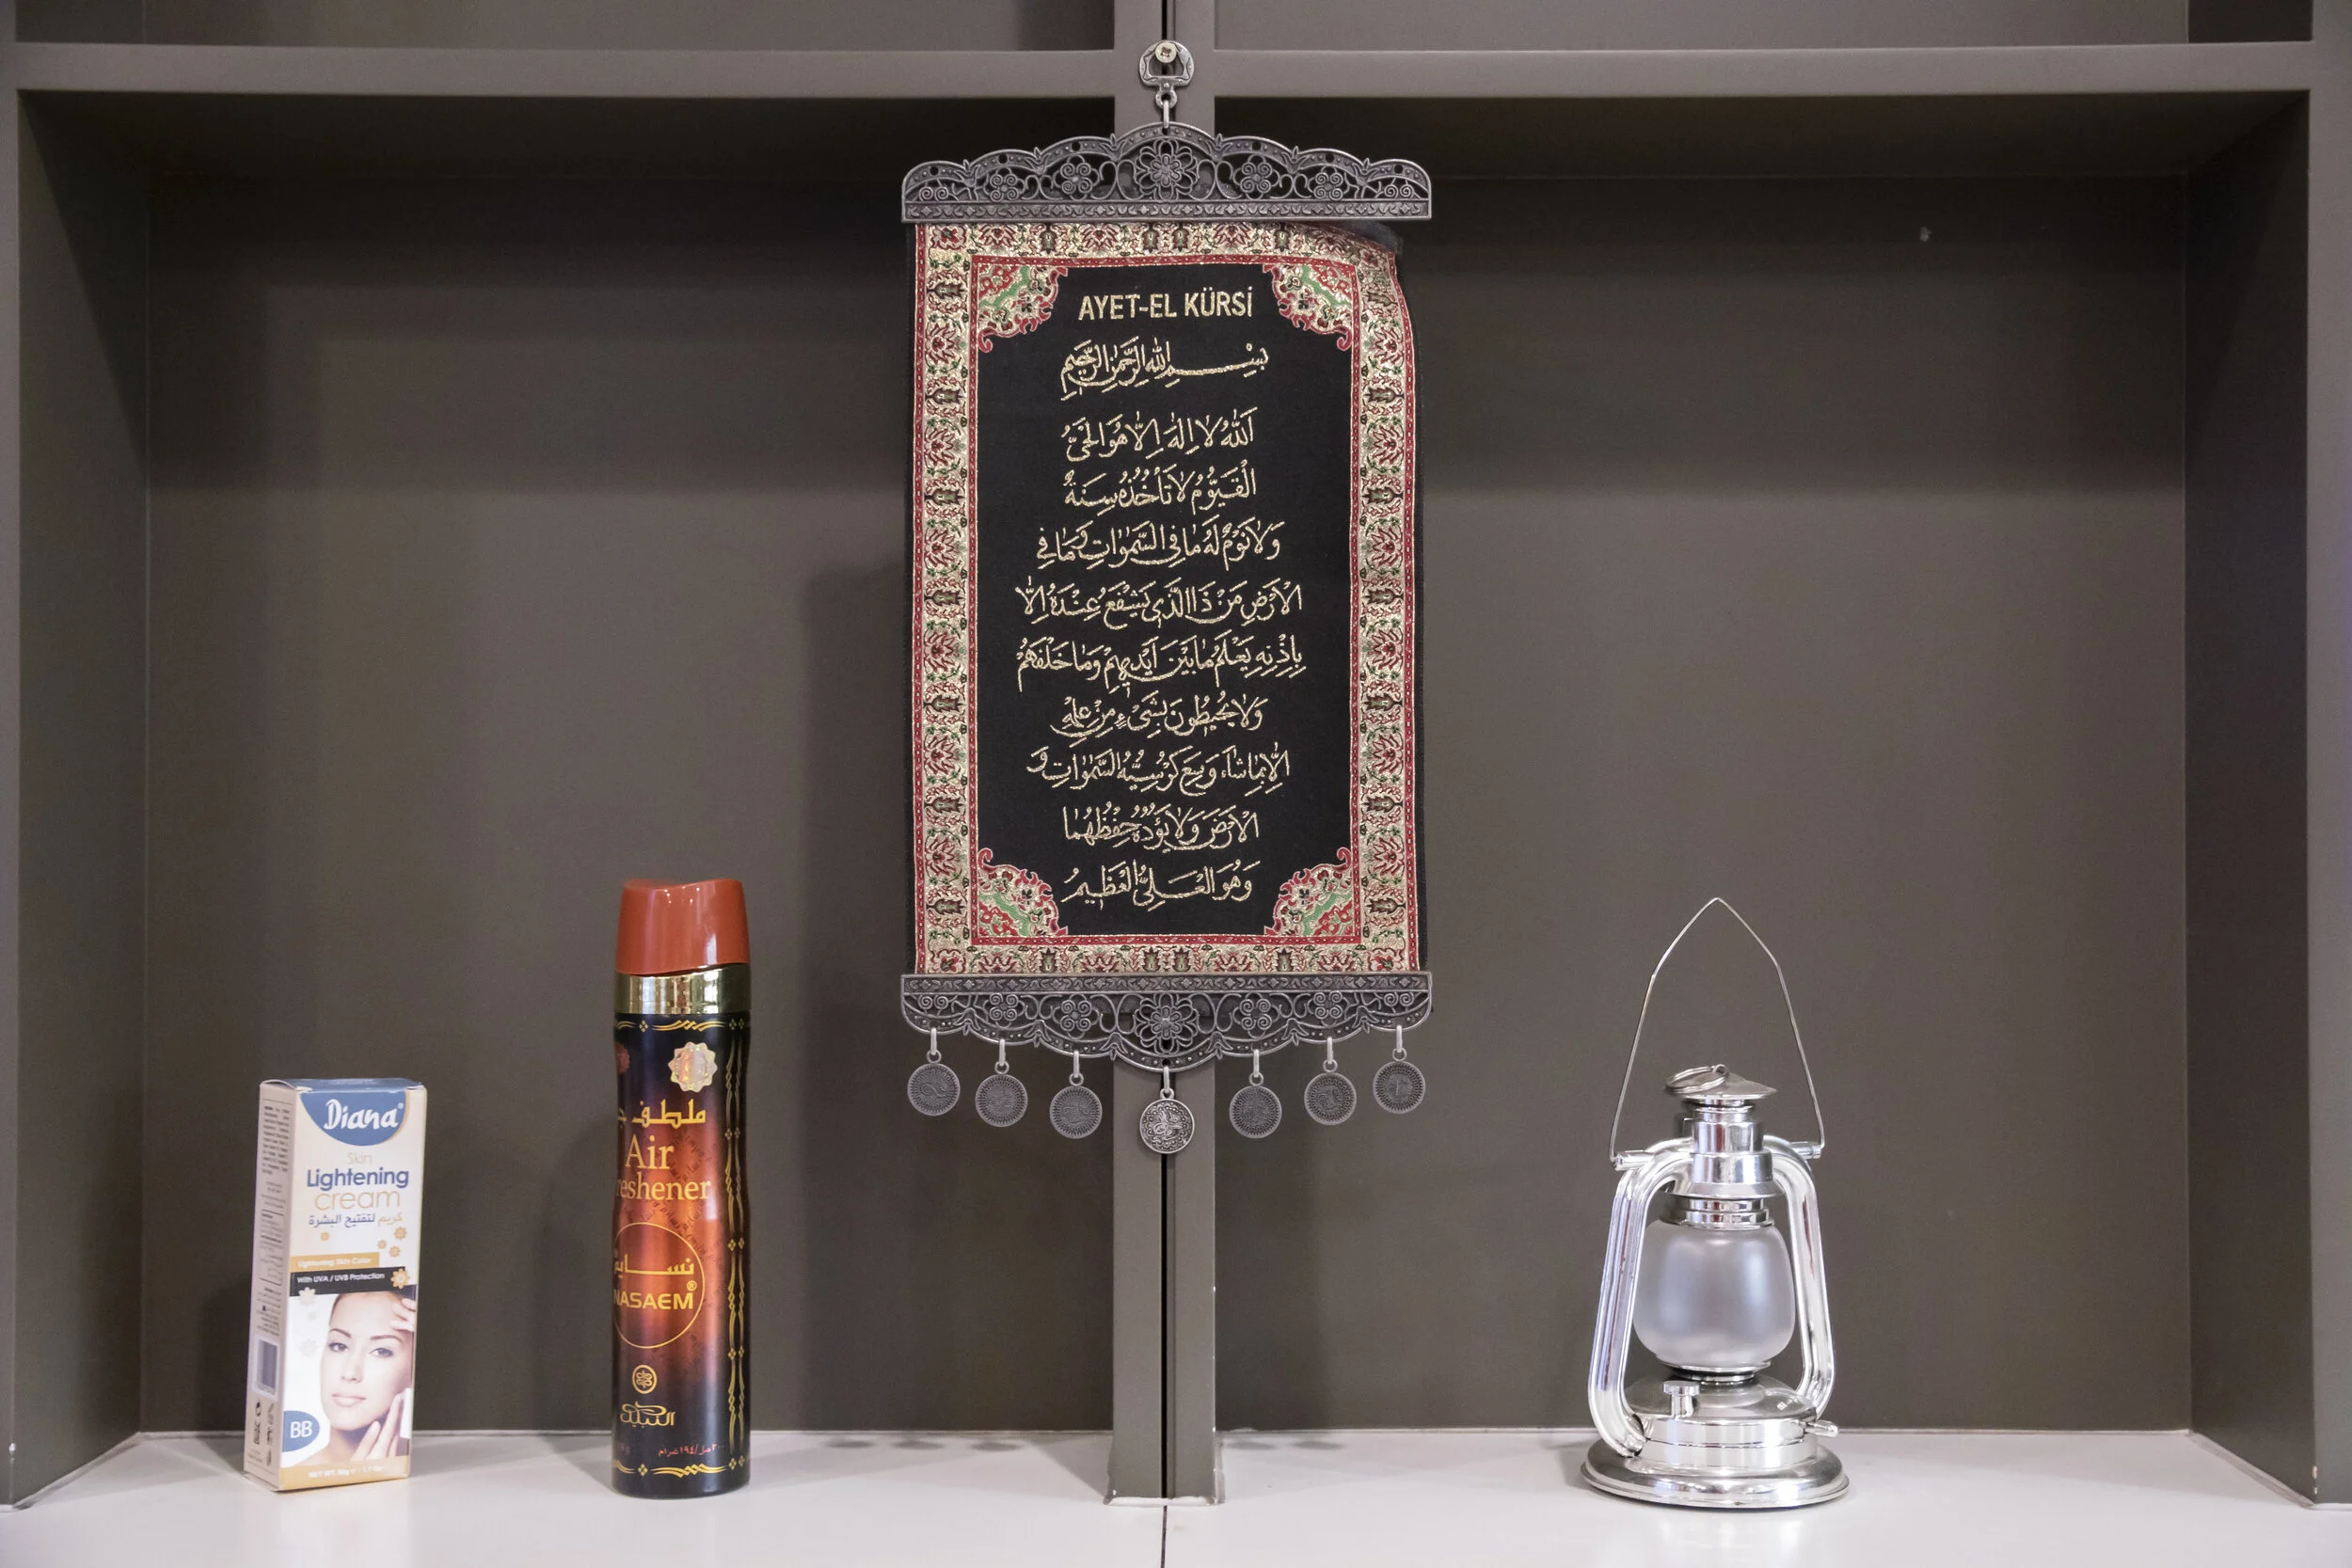 AYET-EL KÜRSİ
بِسْمِ اللّٰهِ الرَّحْمٰنِ الرَّحِيمِ
اَللّٰهُ لَا اِلٰهَ اِلَّا هُوَ الْحَيُّ
الْقَيُّومُ لَا تَأْخُذُهُ سِنَةٌ
وَلَا نَوْمٌ لَهُ مَا فِي السَّمٰوَاتِ وَمَا فِي
الْاَرْضِ مَنْ ذَا الَّذِي يَشْفَعُ عِنْدَهُ اِلَّا
بِاِذْنِهِ يَعْلَمُ مَا بَيْنَ اَيْدِيهِمْ وَمَا خَلْفَهُمْ
وَلَا يُحِيطُونَ بِشَيْءٍ مِنْ عِلْمِهِ
اِلَّا بِمَا شَاءَ وَسِعَ كُرْسِيُّهُ السَّمٰوَاتِ وَ
الْاَرْضَ وَلَا يَؤُدُهُ حِفْظُهُمَا
وَهُوَ الْعَلِيُّ الْعَظِيمُ
Diana
Skin
Lightening
cream
كريم لتفتيح البشرة
Lightening Skin Color
With UVA / UVB Protection
BB
ملطف ج
Air
reshener
نسايم
NASAEM®
النبيل